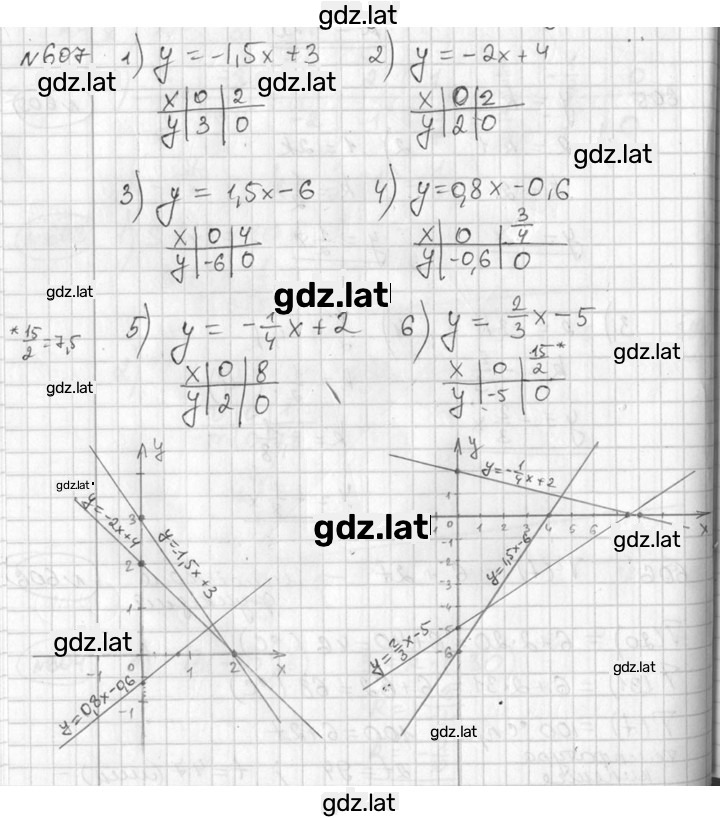 gdz.lat
№607 1) y = -1,5x + 3 2) y = -2x + 4
gdz.lat gdz.lat
x 0 2 x 0 2
y 3 0 y 2 0
gdz.lat
3) y = 1,5x - 6 4) y = 0,8x - 0,6
x 0 4 x 0 3/4
y -6 0 y -0,6 0
gdz.lat gdz.lat
* 15/2 = 7,5 5) y = -1/4 x + 2 6) y = 2/3 x - 5
gdz.lat
gdz.lat
x 0 8 x 0 15/2 *
y 2 0 y -5 0
y y
gdz.lat
y = -2x + 4 y = -1,5x + 3
3
2
1
-1 0 1 2 x
-1
y = 0,8x - 0,6
gdz.lat
y = -1/4 x + 2
1
-1 0 1 2 3 4 5 6 x
-1
-2
-3
-4
-5
-6
y = 1,5x - 6
y = 2/3 x - 5
gdz.lat
gdz.lat
gdz.lat
gdz.lat
gdz.lat